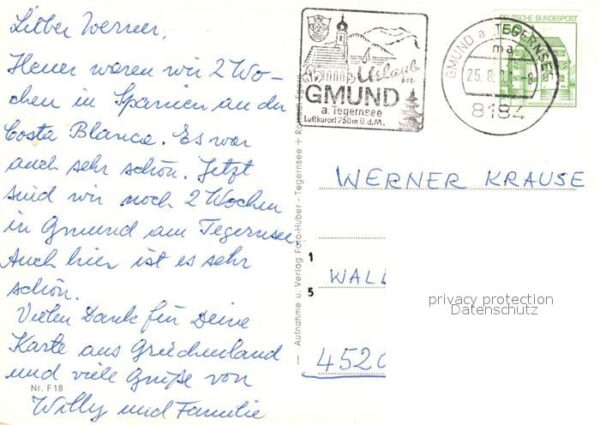 Lieber Werner,
Heuer waren wir 2 Wo-
chen in Spanien an der
Costa Blanca. Es war
auch sehr schön. Jetzt
sind wir noch 2 Wochen
in Gmund am Tegernsee
Auch hier ist es sehr
schön.
Vielen Dank für Deine
Karte aus Griechenland
und viele Grüße von
Willy und Familie
Nr. F 18
Urlaub
in
GMUND
a. Tegernsee
Luftkurort 750 m ü. d. M.
GMUND a. TEGERNSEE
ma
25.8.
8184
DEUTSCHE BUNDESPOST
— Aufnahme u. Verlag Foto-Huber - Tegernsee +
WERNER KRAUSE
1
WALL
5
4520
privacy protection
Datenschutz